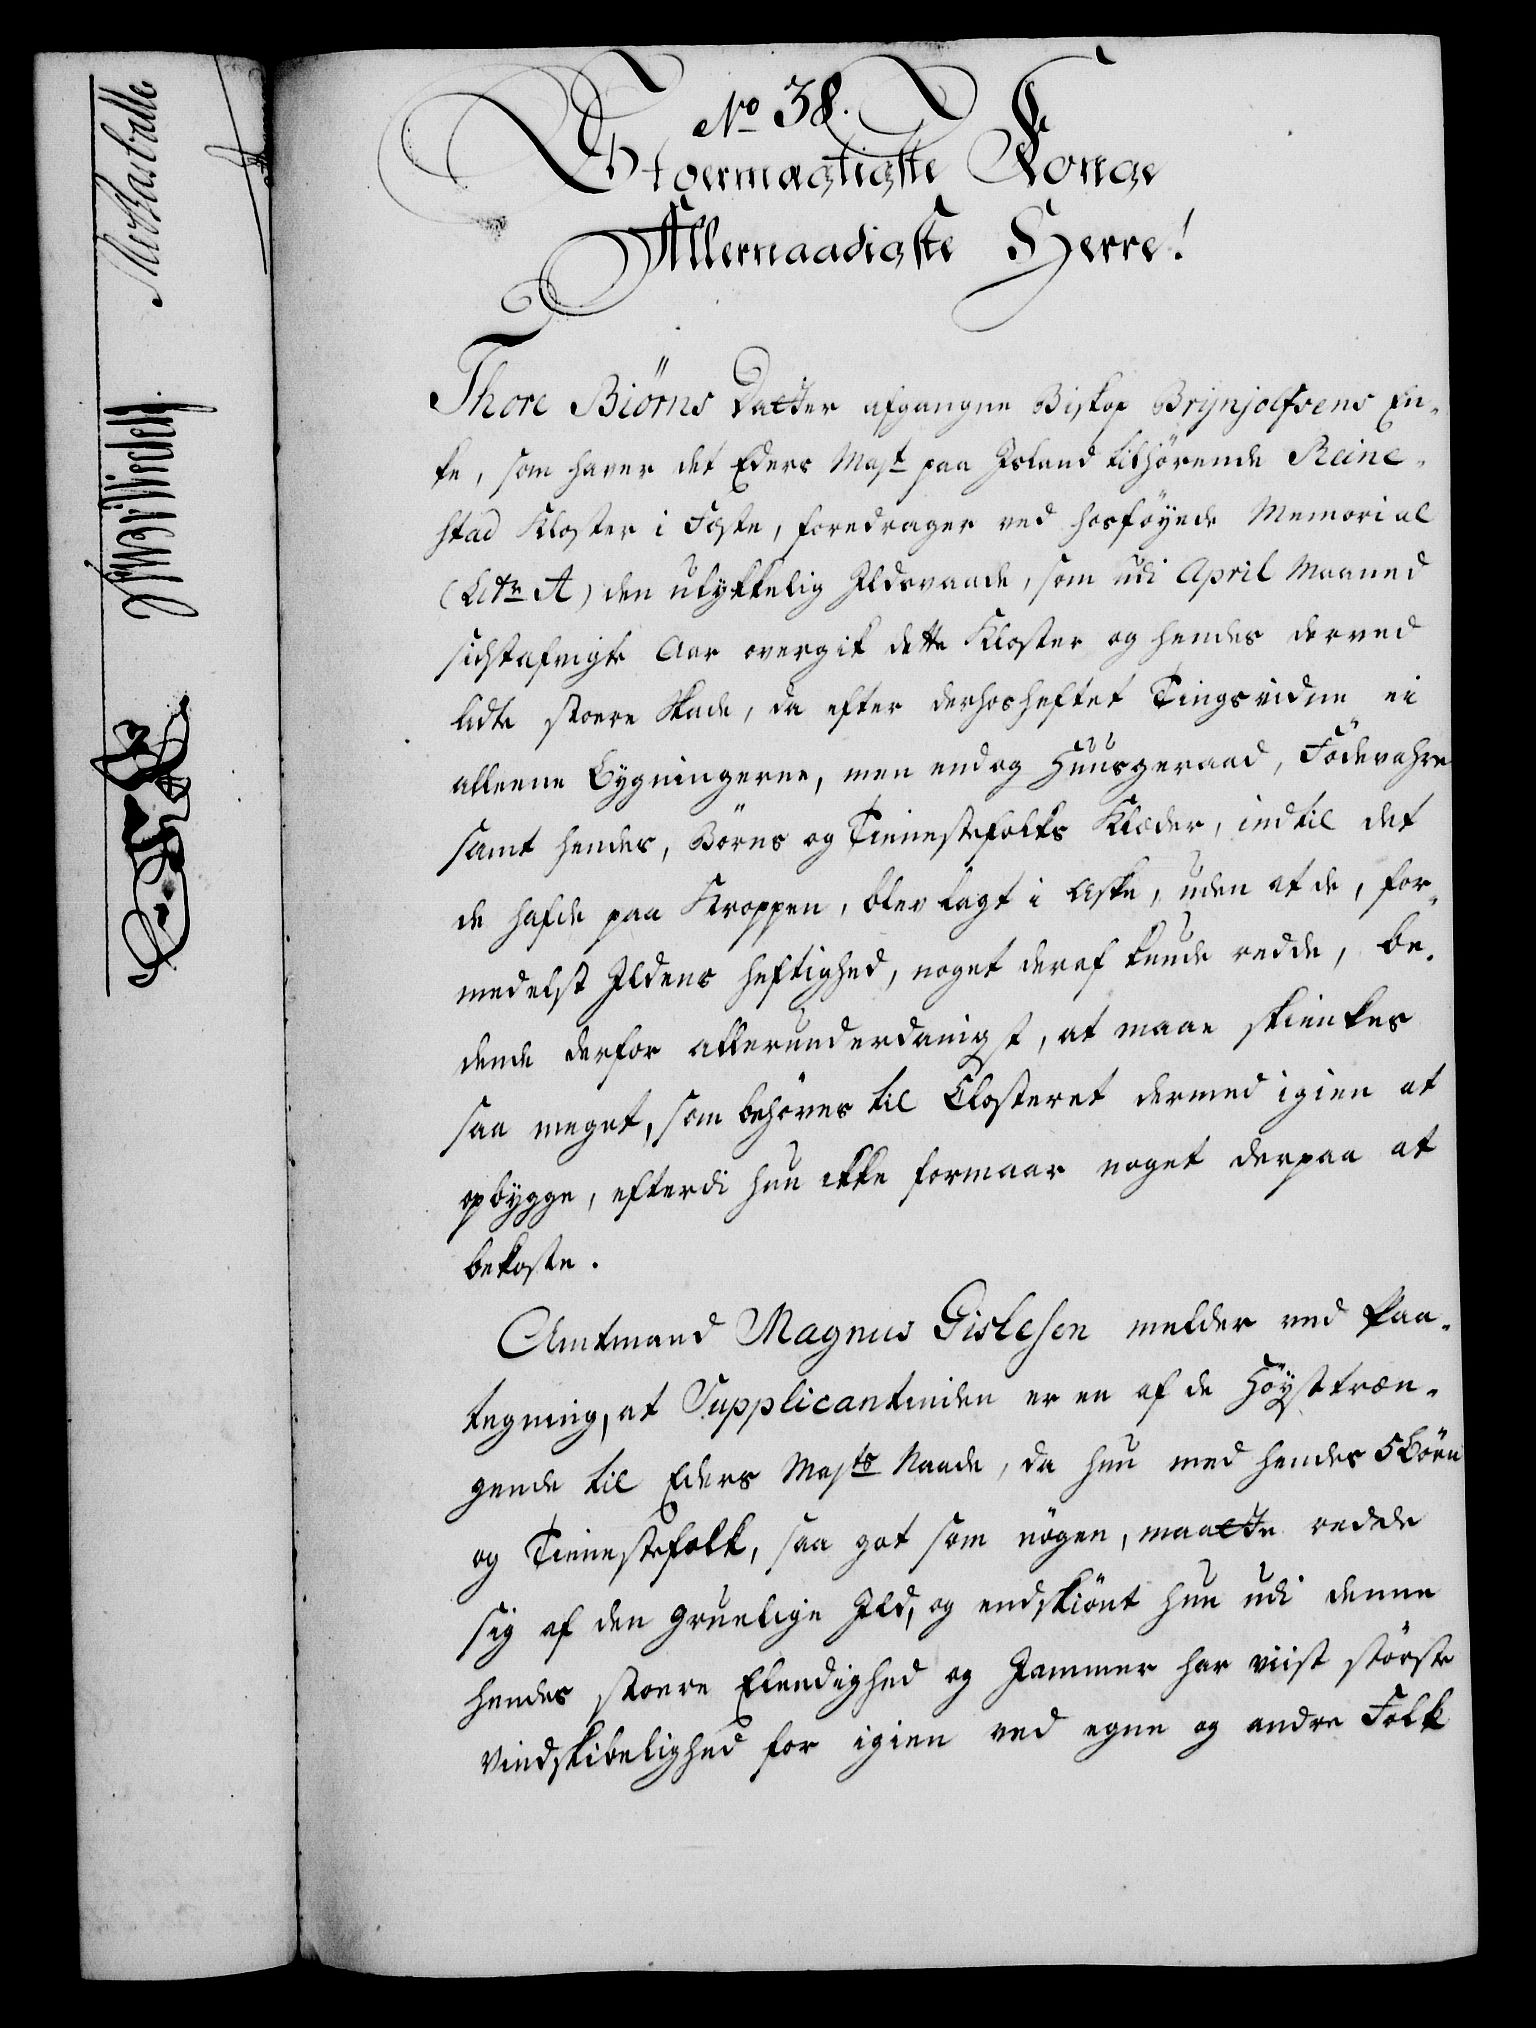 No 38.
Stoermægtigste Konge
Allernaadigste Herre!
Thore Biörns Datter afgangne Biskop Brynjolfsens En-
ke, som haver det Eders Mayt paa Island tilhörende Reine-
stad Kloster i Fæste, foredrager ved hosföyede Memorial
(Litr A) den ulykkelig Ildsvaade, som udi April Maaned
sidstafvigte Aar overgik dette Kloster og hendes derved
lidte stoere Skade, da efter derhosheftet Tingsvidne ei
alleene Bygningerne, men endog Huusgeraad, Födevahre
samt hendes, Börns og Tienestefolks Klæder, indtil det
de hafde paa Kroppen, blev lagt i Aske, uden at de, for-
medelst Ildens heftighed, noget deraf kunde redde, be-
dende derfor allerunderdanigst, at maae skienkes
saa meget, som behöves til Closteret dermed igien at
opbygge, efterdi hun ikke formaar noget derpaa at
bekoste.
Amtmand Magnus Gislesen melder ved Paa-
tegning, at Supplicantinden er en af de Höysttræn-
gende til Eders Mayts Naade, da hun med hendes 5 Börn
og Tienestefolk, saa got som nögen, maatte redde
sig af den gruelige Ild, og endskiönt hun udi denne
hendes stoere Elendighed og Jammer har viist störste
Vindskibelighed for igien ved egne og andre Folk